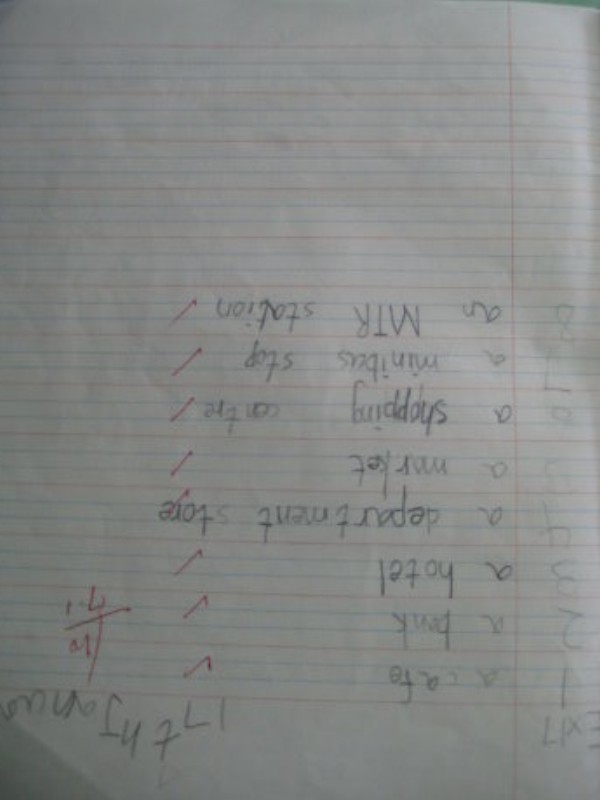 17th Janua
1 a cafe
2 a bank
3 a hotel
4 a department store
5 a market
6 a shopping centre
7 a minibus stop
8 an MTR station